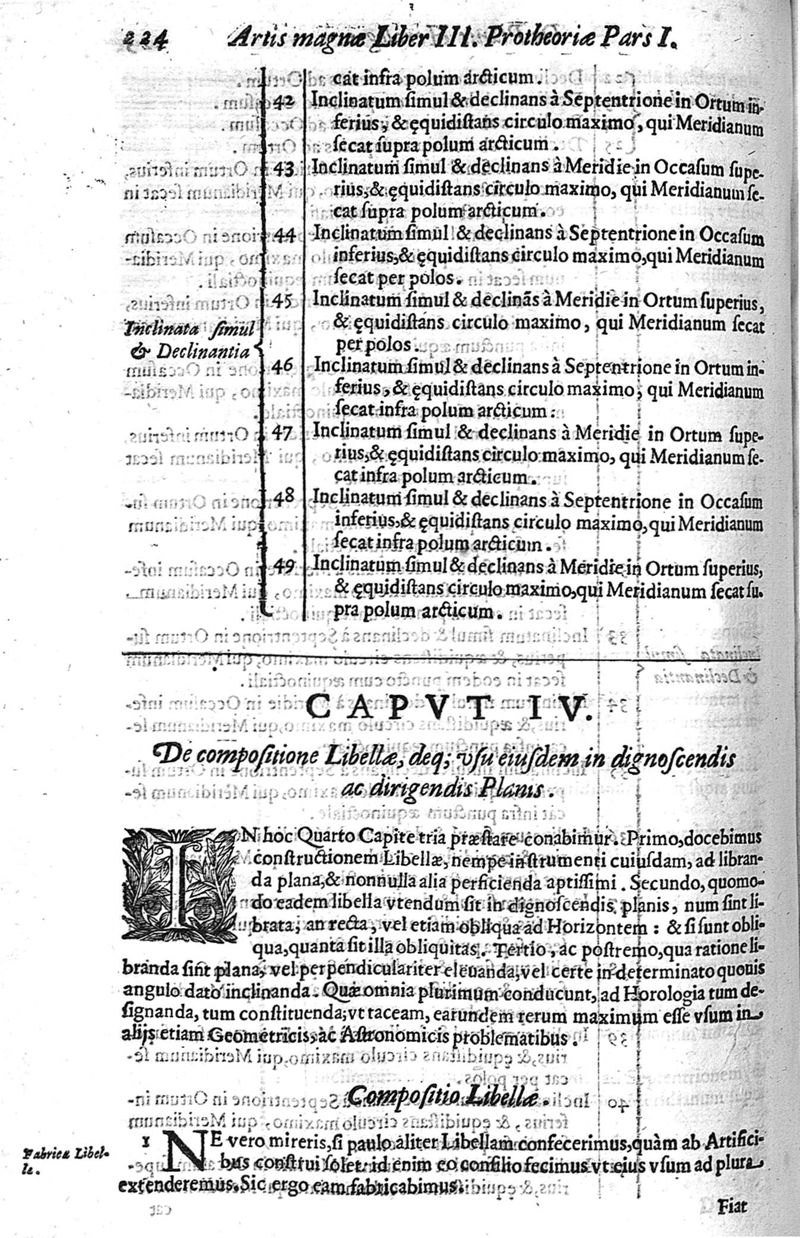 224 Artis magnæ Liber III. Protheoriæ Pars I.
cat infra polum arcticum.
42 Inclinatum simul & declinans à Septentrione in Ortum in-
ferius, & ęquidistans circulo maximo, qui Meridianum
secat supra polum arcticum.
43 Inclinatum simul & declinans à Meridie in Occasum supe-
rius, & ęquidistans circulo maximo, qui Meridianum se-
cat supra polum arcticum.
44 Inclinatum simul & declinans à Septentrione in Occasum
inferius, & ęquidistans circulo maximo, qui Meridianum
secat per polos.
45 Inclinatum simul & declinãs à Meridie in Ortum superius,
& ęquidistans circulo maximo, qui Meridianum secat
per polos.
Inclinata simul
& Declinantia
46 Inclinatum simul & declinans à Septentrione in Ortum in-
ferius, & ęquidistans circulo maximo, qui Meridianum
secat infra polum arcticum.
47 Inclinatum simul & declinans à Meridie in Ortum supe-
rius, & ęquidistans circulo maximo, qui Meridianum se-
cat infra polum arcticum.
48 Inclinatum simul & declinans à Septentrione in Occasum
inferius, & ęquidistans circulo maximo, qui Meridianum
secat infra polum arcticum.
49 Inclinatum simul & declinans à Meridie in Ortum superius,
& ęquidistans circulo maximo, qui Meridianum secat su-
pra polum arcticum.
CAPVT IV.
De compositione Libellæ, deq; vsu eiusdem in dignoscendis
ac dirigendis Planis.
IN hoc Quarto Capite tria præstare conabimur. Primo, docebimus
constructionem Libellæ, nempe instrumenti cuiusdam, ad libran-
da plana, & nonnulla alia perficienda aptissimi. Secundo, quomo-
do eadem libella vtendum sit in dignoscendis planis, num sint li-
brata; an recta, vel etiam obliqua ad Horizontem: & si sunt obli-
qua, quanta sit illa obliquitas. Tertio, ac postremo, qua ratione li-
branda sint plana, vel perpendiculariter eleuanda, vel certe in determinato quouis
angulo dato inclinanda. Quæ omnia plurimum conducunt, ad Horologia tum de-
signanda, tum constituenda; vt taceam, earundem rerum maximum esse vsum in
alijs etiam Geometricis, ac Astronomicis problematibus.
Compositio Libellæ.
Fabrica Libel-
læ.
1 NE vero mireris, si paulo aliter Libellam confecerimus, quàm ab Artifici-
bus construi solet: id enim eo consilio fecimus vt eius vsum ad plura
extenderemus. Sic ergo eam fabricabimus.
Fiat